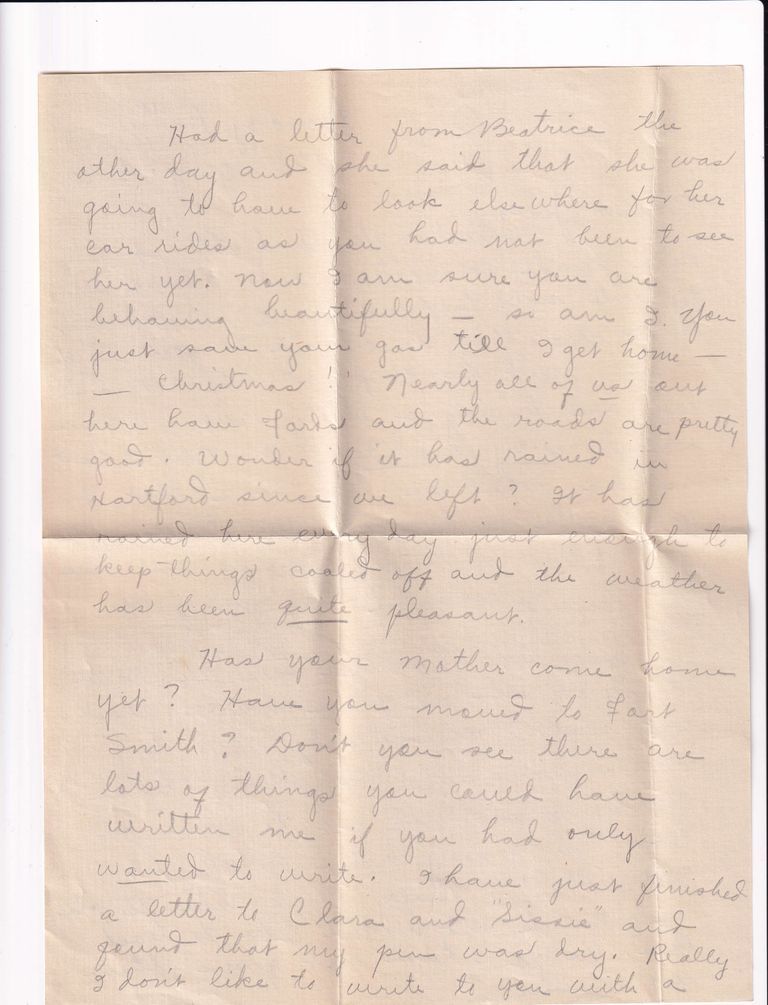 Had a letter from Beatrice the
other day and she said that she was
going to have to look else where for her
car rides as you had not been to see
her yet. Now I am sure you are
behaving beautifully — so am I. You
just save your gas till I get home —
— Christmas!! Nearly all of us out
here have Fords and the roads are pretty
good. Wonder if it has rained in
Hartford since we left? It has
rained here every day just enough to
keep things cooled off and the weather
has been quite pleasant.
Has your Mother come home
yet? Have you moved to Fort
Smith? Don't you see there are
lots of things you could have
written me if you had only
wanted to write. I have just finished
a letter to Clara and "Sissie" and
found that my pen was dry. Really
I don't like to write to you with a